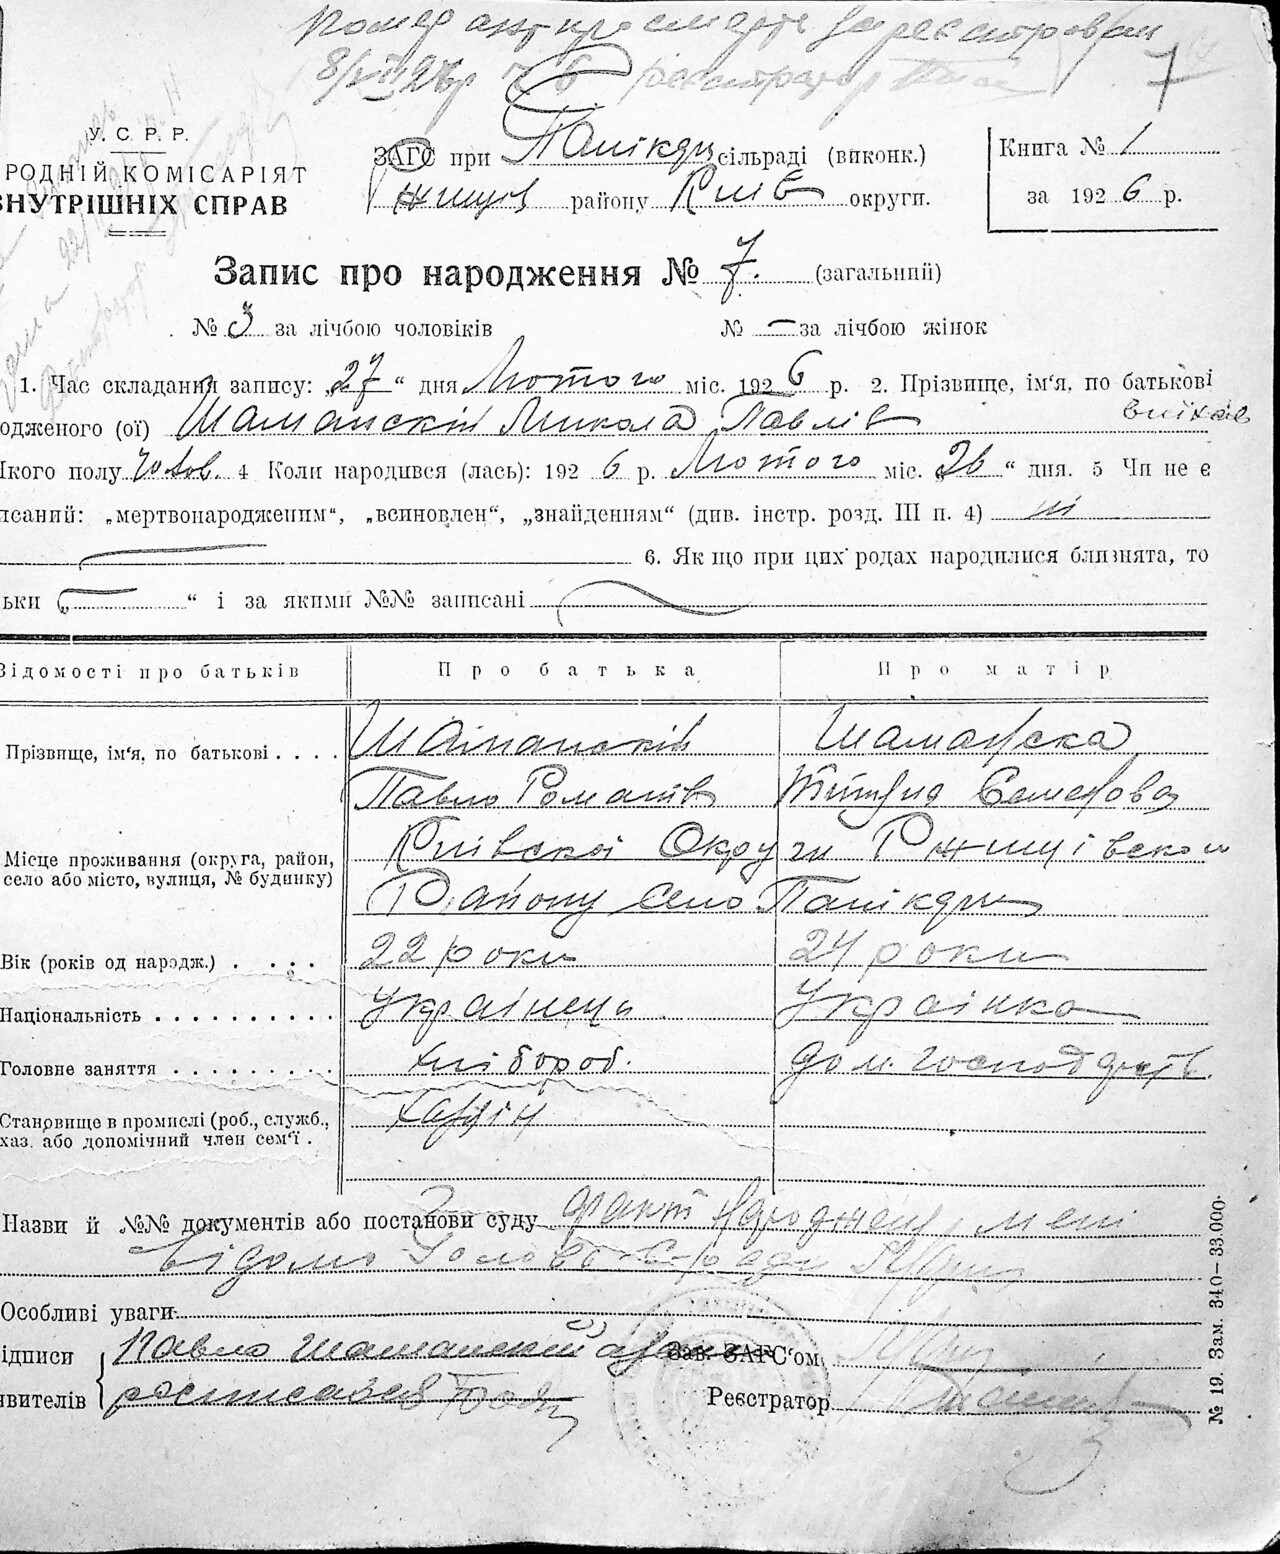 Номер акт про смерть зареєстрован
8/VII 26р № 6 реєстратор
7
У. С. Р. Р.
РОДНІЙ КОМІСАРІЯТ
ВНУТРІШНІХ СПРАВ
ЗАГС при Панікарч сільраді (виконк.)
Ржищів району Київ округи.
Книга № 1
за 1926 р.
Запис про народження № 7. (загальний)
№ 3 за лічбою чоловіків № — за лічбою жінок
1. Час складання запису: „27“ дня Лютого міс. 1926 р. 2. Прізвище, ім'я, по батькові
одженого (ої) Шаманскій Микола Павлів
кого полу чолов. 4 Коли народився (лась): 1926 р. Лютого міс. „26“ дня. 5 Чи не є
исаний: „мертвонародженим“, „всиновлен“, „знайденням“ (див. інстр. розд. III п. 4) ні
6. Як що при цих родах народилися близнята, то
ьки „—“ і за якими №№ записані
Відомості про батьків Про батька Про матір
Прізвище, ім'я, по батькові . . . . Шаманскій Шаманска
Павло Романів Семенова
Місце проживання (округа, район, Київскої Округи Ржищівского
село або місто, вулиця, № будинку) Району Село Панікарч
Вік (років од народж.) . . . . 22 роки 24 роки
Національність . . . . . . . . . . Українець Українка
Головне заняття . . . . . . . . . хлібороб. дом. господарств.
Становище в промислі (роб., служб., хазяїн
хаз. або допомічний член сем'ї .
Назви й №№ документів або постанови суду факт народження мені
відомо Голова С-ради
Особливі уваги
ідписи Павло Шаманскій Зав. ЗАГС'ом
явителів росписався Реєстратор
№ 19. Зам. 340—33.000.